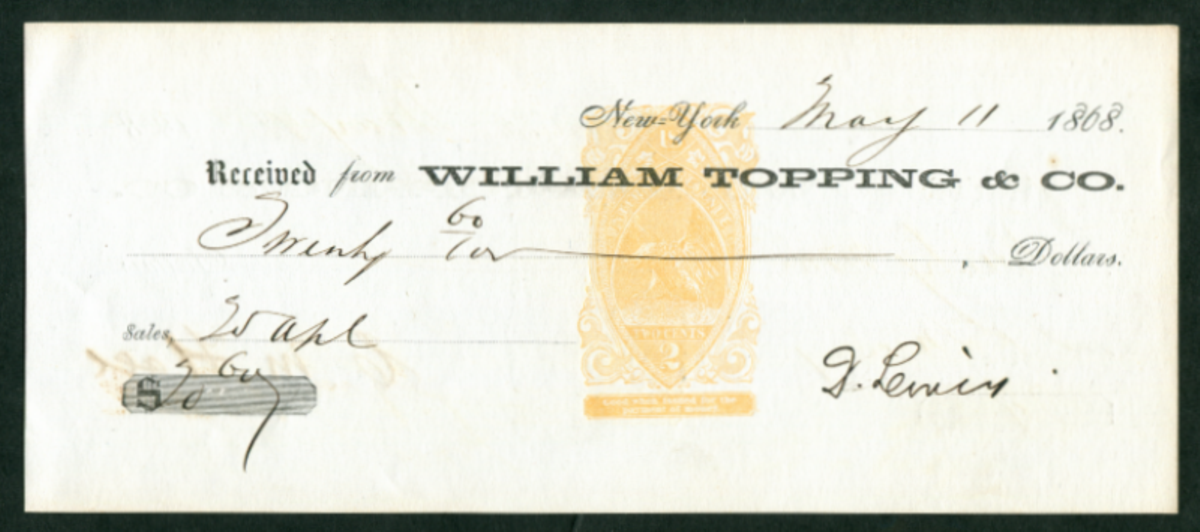 New-York May 11 1868.
Received from WILLIAM TOPPING & CO.
Twenty 60/100 , Dollars.
Sales, 20 Apl
$20 60
D. Lewis
TWO CENTS
2